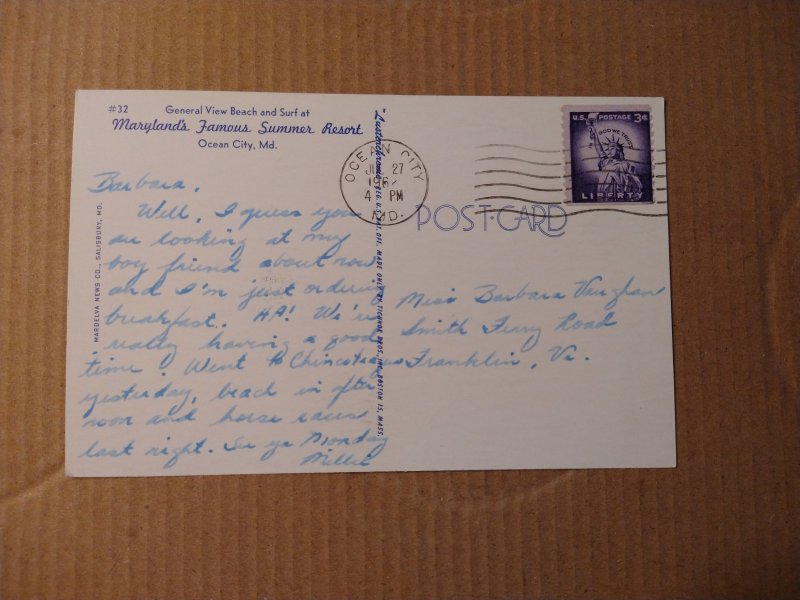 #32 General View Beach and Surf at
Maryland's Famous Summer Resort
Ocean City, Md.
Barbara,
Well, I guess you
are looking at my
boy friend about now
and I'm just ordering
breakfast. HA! We're
really having a good
time. Went to Chincoteague
yesterday, beach in after
noon and horse races
last night. See ya Monday
Millie
MARDELVA NEWS CO., SALISBURY, MD.
"Lusterchrome" REG. U.S. PAT. OFF. MADE ONLY BY TICHNOR BROS., INC., BOSTON 15, MASS.
OCEAN CITY
27
4 PM
MD.
U.S. POSTAGE 3¢
IN GOD WE TRUST
LIBERTY
POST CARD
Miss Barbara Vaughan
Smith Ferry Road
Franklin, Va.